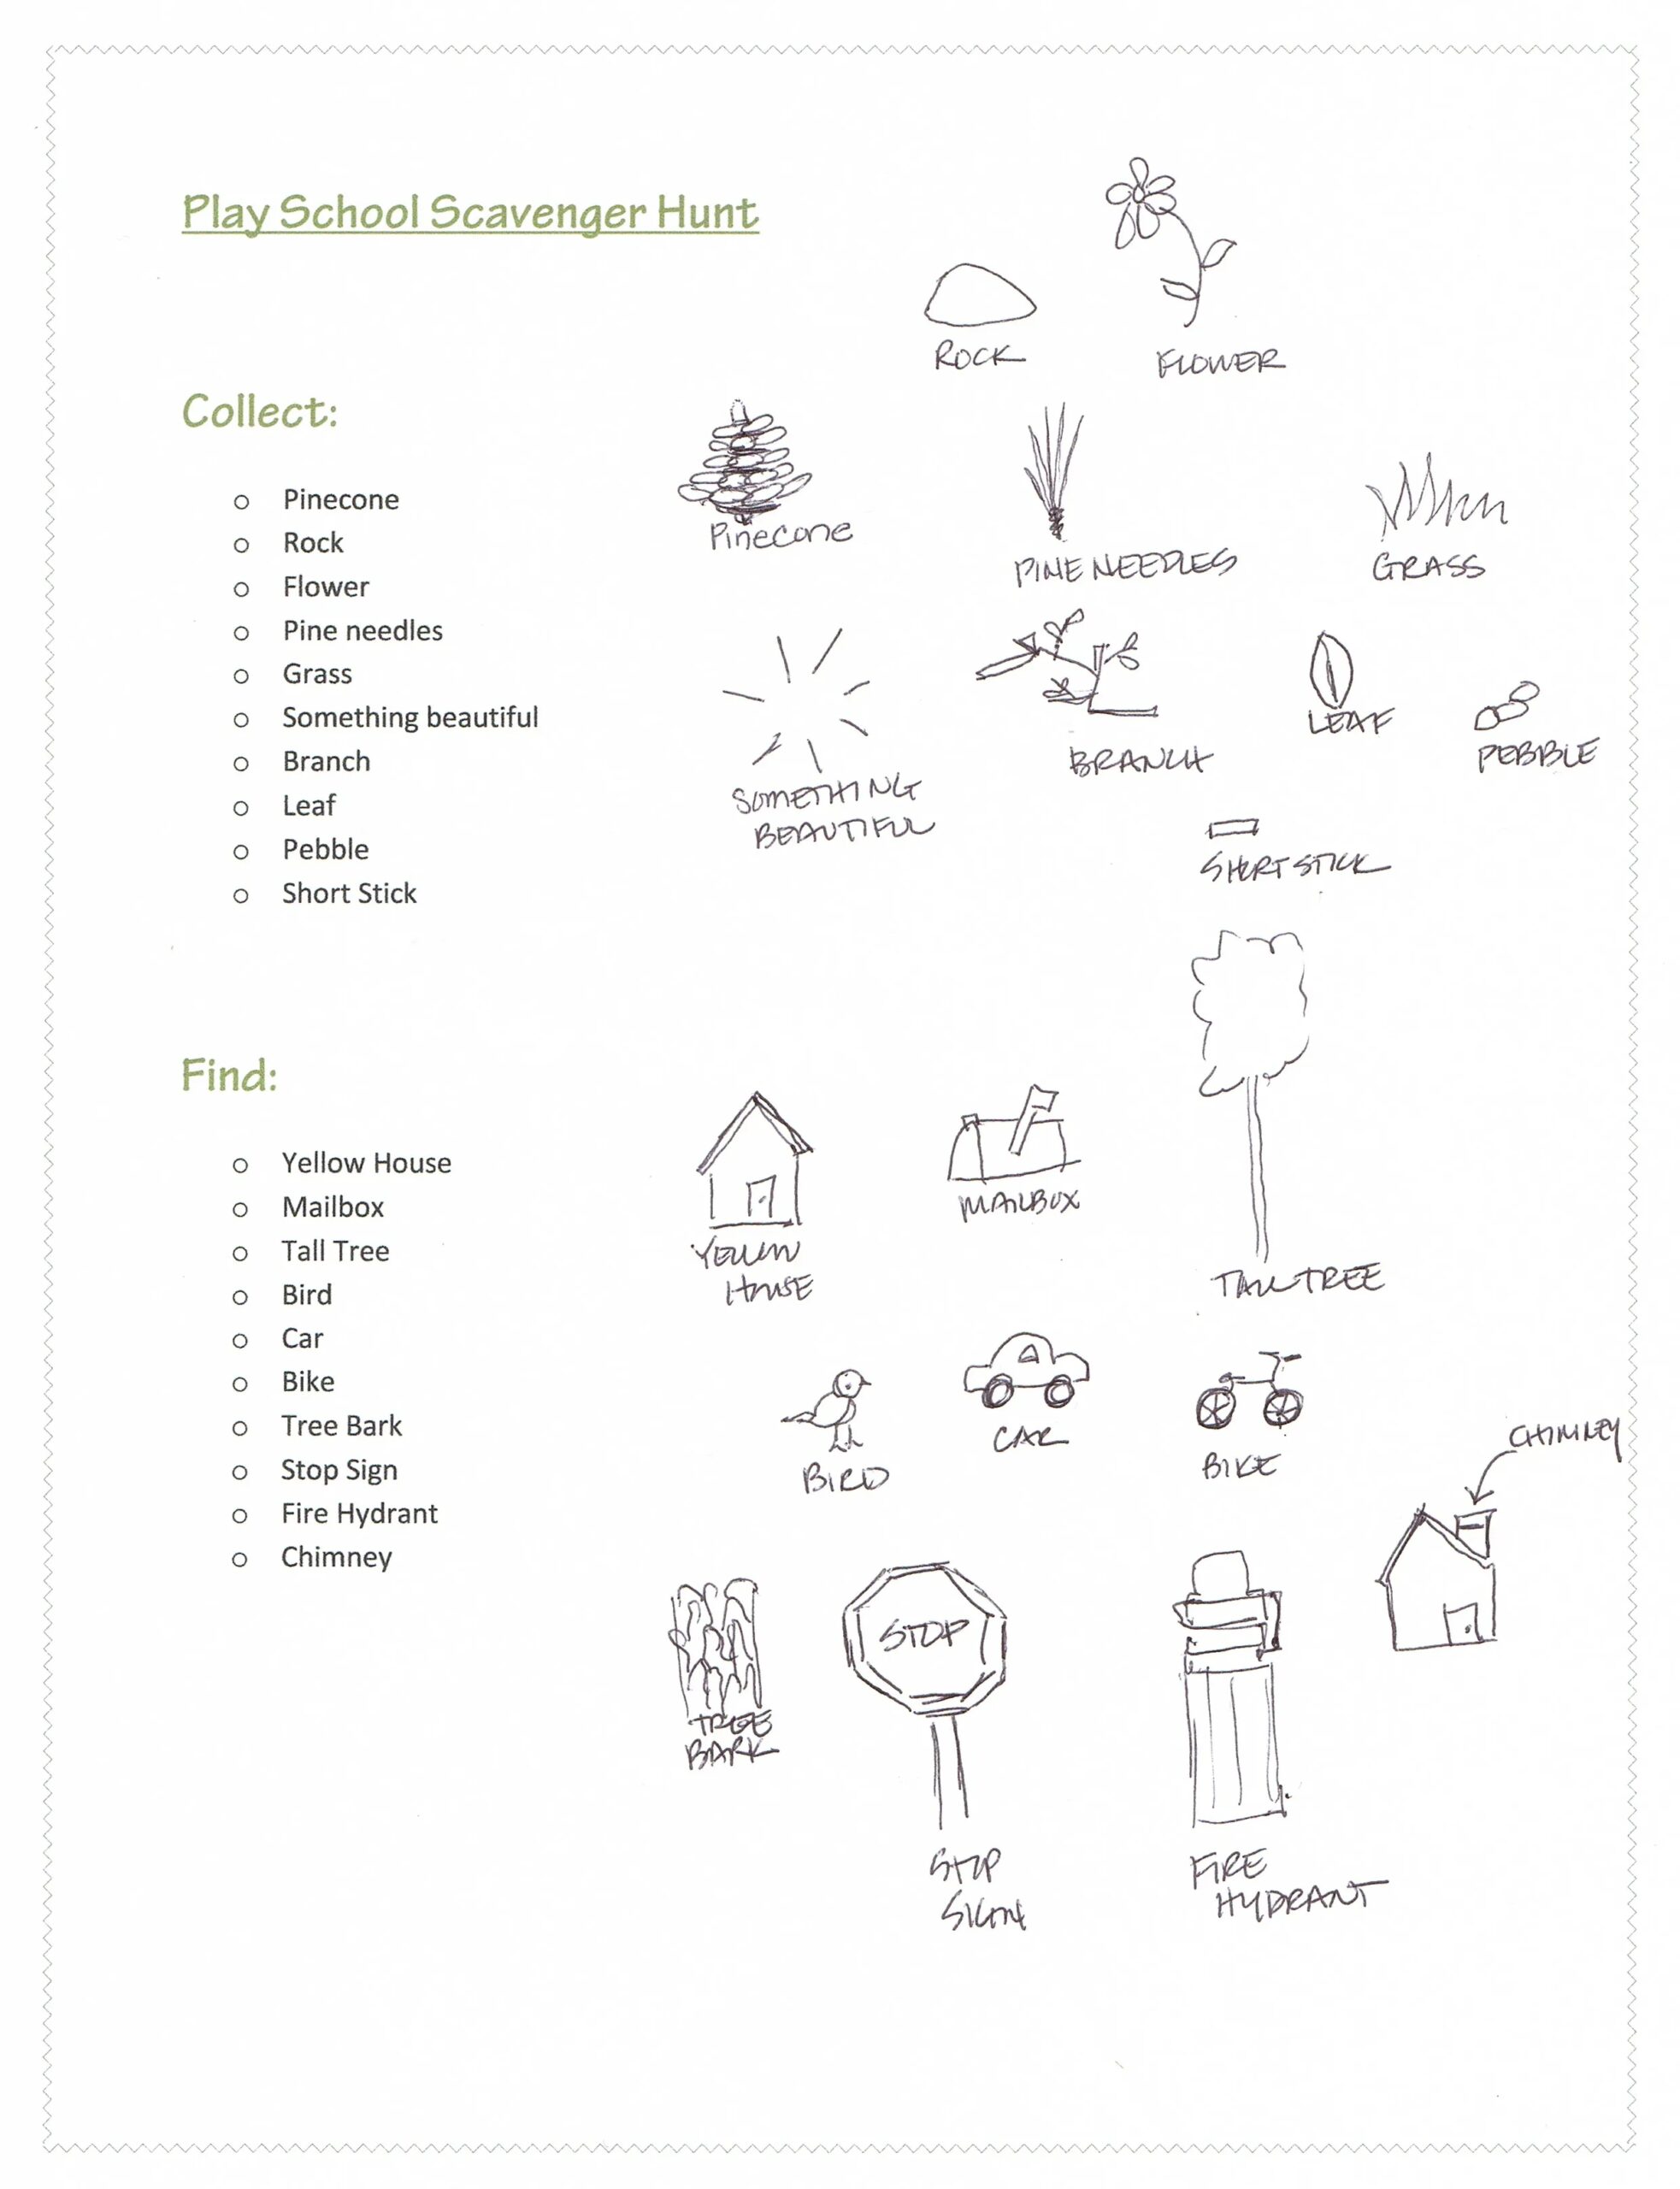 Play School Scavenger Hunt
ROCK
FLOWER
Collect:
Pinecone
Rock
Flower
Pine needles
Grass
Something beautiful
Branch
Leaf
Pebble
Short Stick
Pinecone
PINE NEEDLES
GRASS
SOMETHING
BEAUTIFUL
BRANCH
LEAF
PEBBLE
SHORT STICK
Find:
Yellow House
Mailbox
Tall Tree
Bird
Car
Bike
Tree Bark
Stop Sign
Fire Hydrant
Chimney
YELLOW
HOUSE
MAILBOX
TALL TREE
BIRD
CAR
BIKE
CHIMNEY
TREE
BARK
STOP
STOP
SIGN
FIRE
HYDRANT